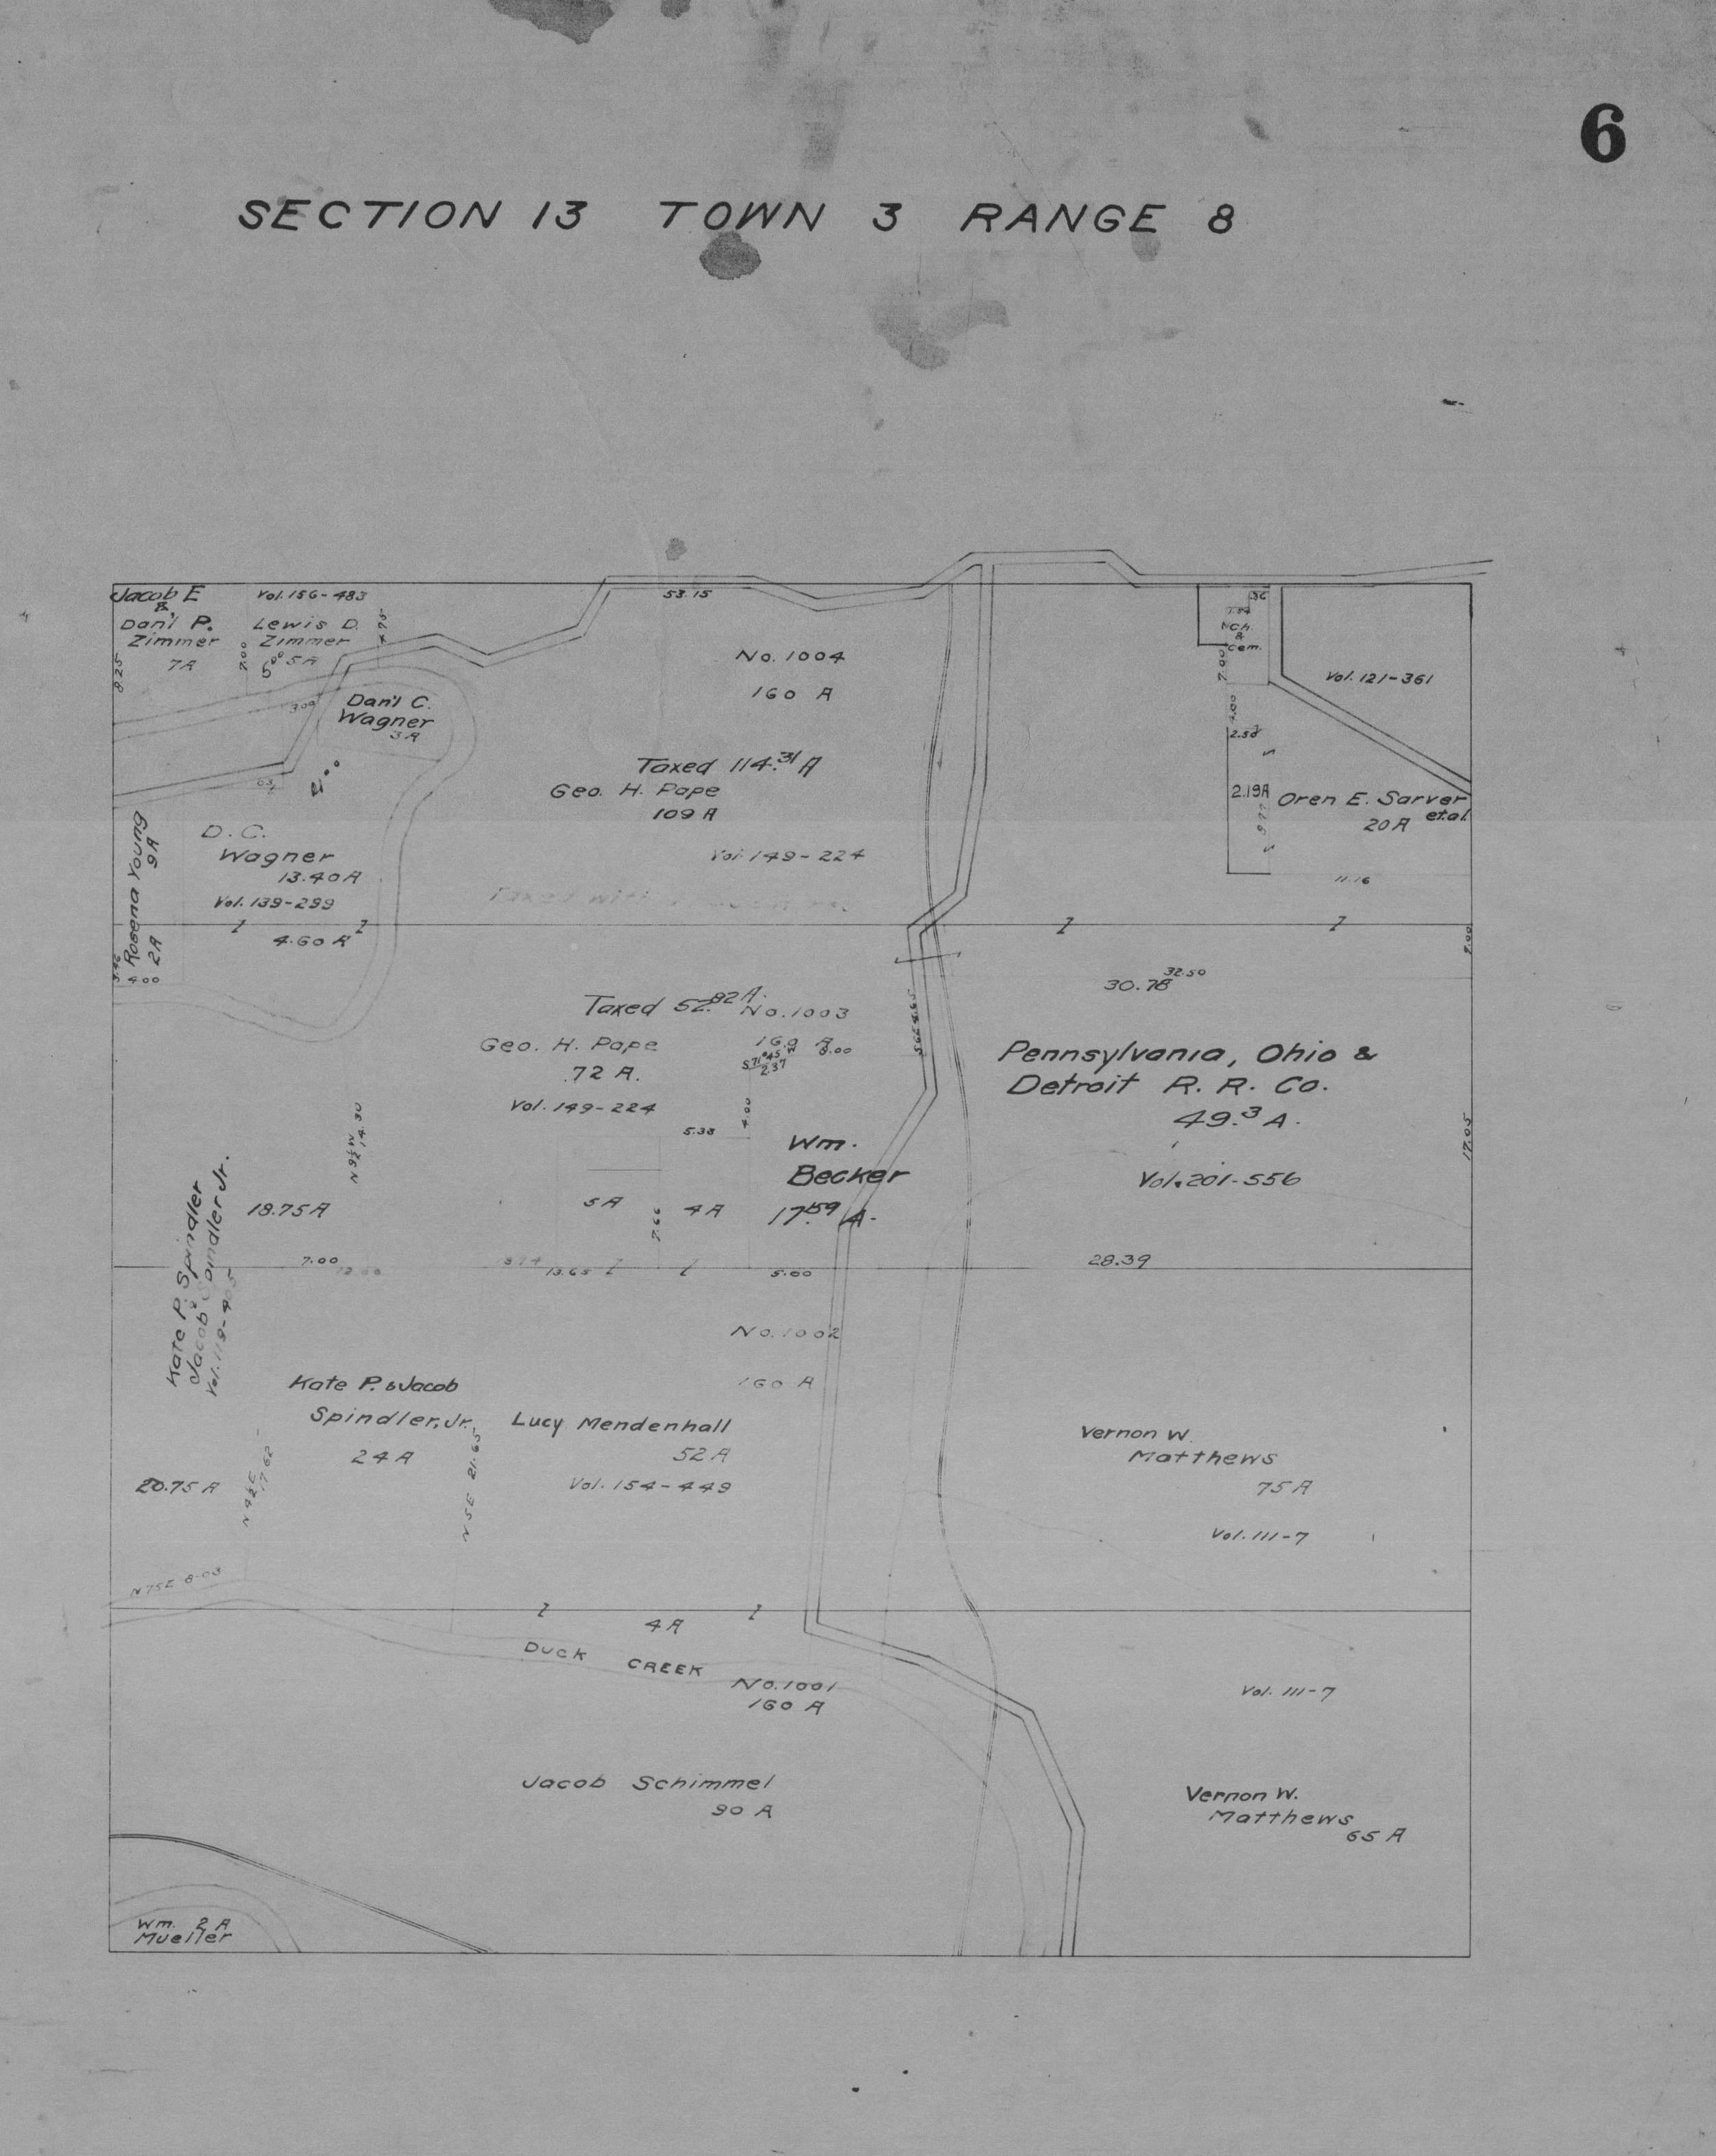 6
SECTION 13 TOWN 3 RANGE 8
Jacob E
&
Dan'l P.
Zimmer
7A
8.25
Vol. 156-483
Lewis D.
Zimmer
5A
7.00
4.75
53.15
No. 1004
160 A
Dan'l C.
Wagner
3A
3.00
Taxed 114.31 A
Geo. H. Pape
109 A
Vol. 149-224
Taxed with
D. C.
Wagner
13.40A
Vol. 139-299
4.60 A
Rosena Young
9A
2A
4.00
36
Ch.
&
Cem.
2.00
4.00
2.58
2.19A
Vol. 121-361
Oren E. Sarver
et.al.
20 A
11.16
9.00
32.50
30.78
Taxed 52.82 A.
No. 1003
160 A
Geo. H. Pape
72 A.
Vol. 149-224
S71°45'W
2.37
8.00
S6E 4.65
Pennsylvania, Ohio &
Detroit R. R. Co.
49.3 A.
Vol. 201-556
17.05
28.39
5.38
4.00
Wm.
Becker
17.59 A.
5A
4A
7.66
N9½W
14.30
18.75A
7.00
13.65
5.00
Kate P. Spindler
Jacob Spindler Jr.
No. 1002
160 A
Kate P. & Jacob
Spindler, Jr.
24 A
Lucy Mendenhall
52 A
Vol. 154-449
N 5E 21.65
20.75 A
N 4½E
17.62
N75E 8.03
Vernon W.
Matthews
75A
Vol. 111-7
4A
DUCK CREEK
No. 1001
160 A
Vol. 111-7
Jacob Schimmel
90 A
Vernon W.
Matthews
65 A
Wm. 2A
Mueller